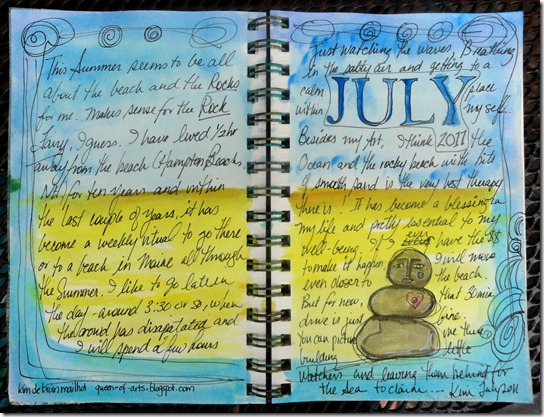 This Summer seems to be all
about the beach and the Rocks
for me. Makes sense for the Rock
Fairy, I guess. I have lived 1/2 hr
away from the beach (Hampton Beach,
NH) for ten years and within
the last couple of years, it has
become a weekly ritual to go there
or to a beach in Maine all through
the Summer. I like to go late in
the day - around 3:30 or so, when
the crowd has disapatated and
I will spend a few hours
kim debrain mailhot queen-of-arts.blogspot.com
Just watching the waves, Breathing
in the salty air and getting to a
calm place
within my self.
JULY
2011
Besides my Art, I think the
Ocean and the rocky beach with bits
of smooth sand is the very best therapy
there is! It has become a blessing in
my life and pretty essential to my
Well-being. If I have the $$
to make it happen, I will move
even closer to the beach.
But for now, that 30 min
drive is just fine.
You can picture me there
building little
Watchers and leaving them behind for
the Sea to claim.... Kim July 2011